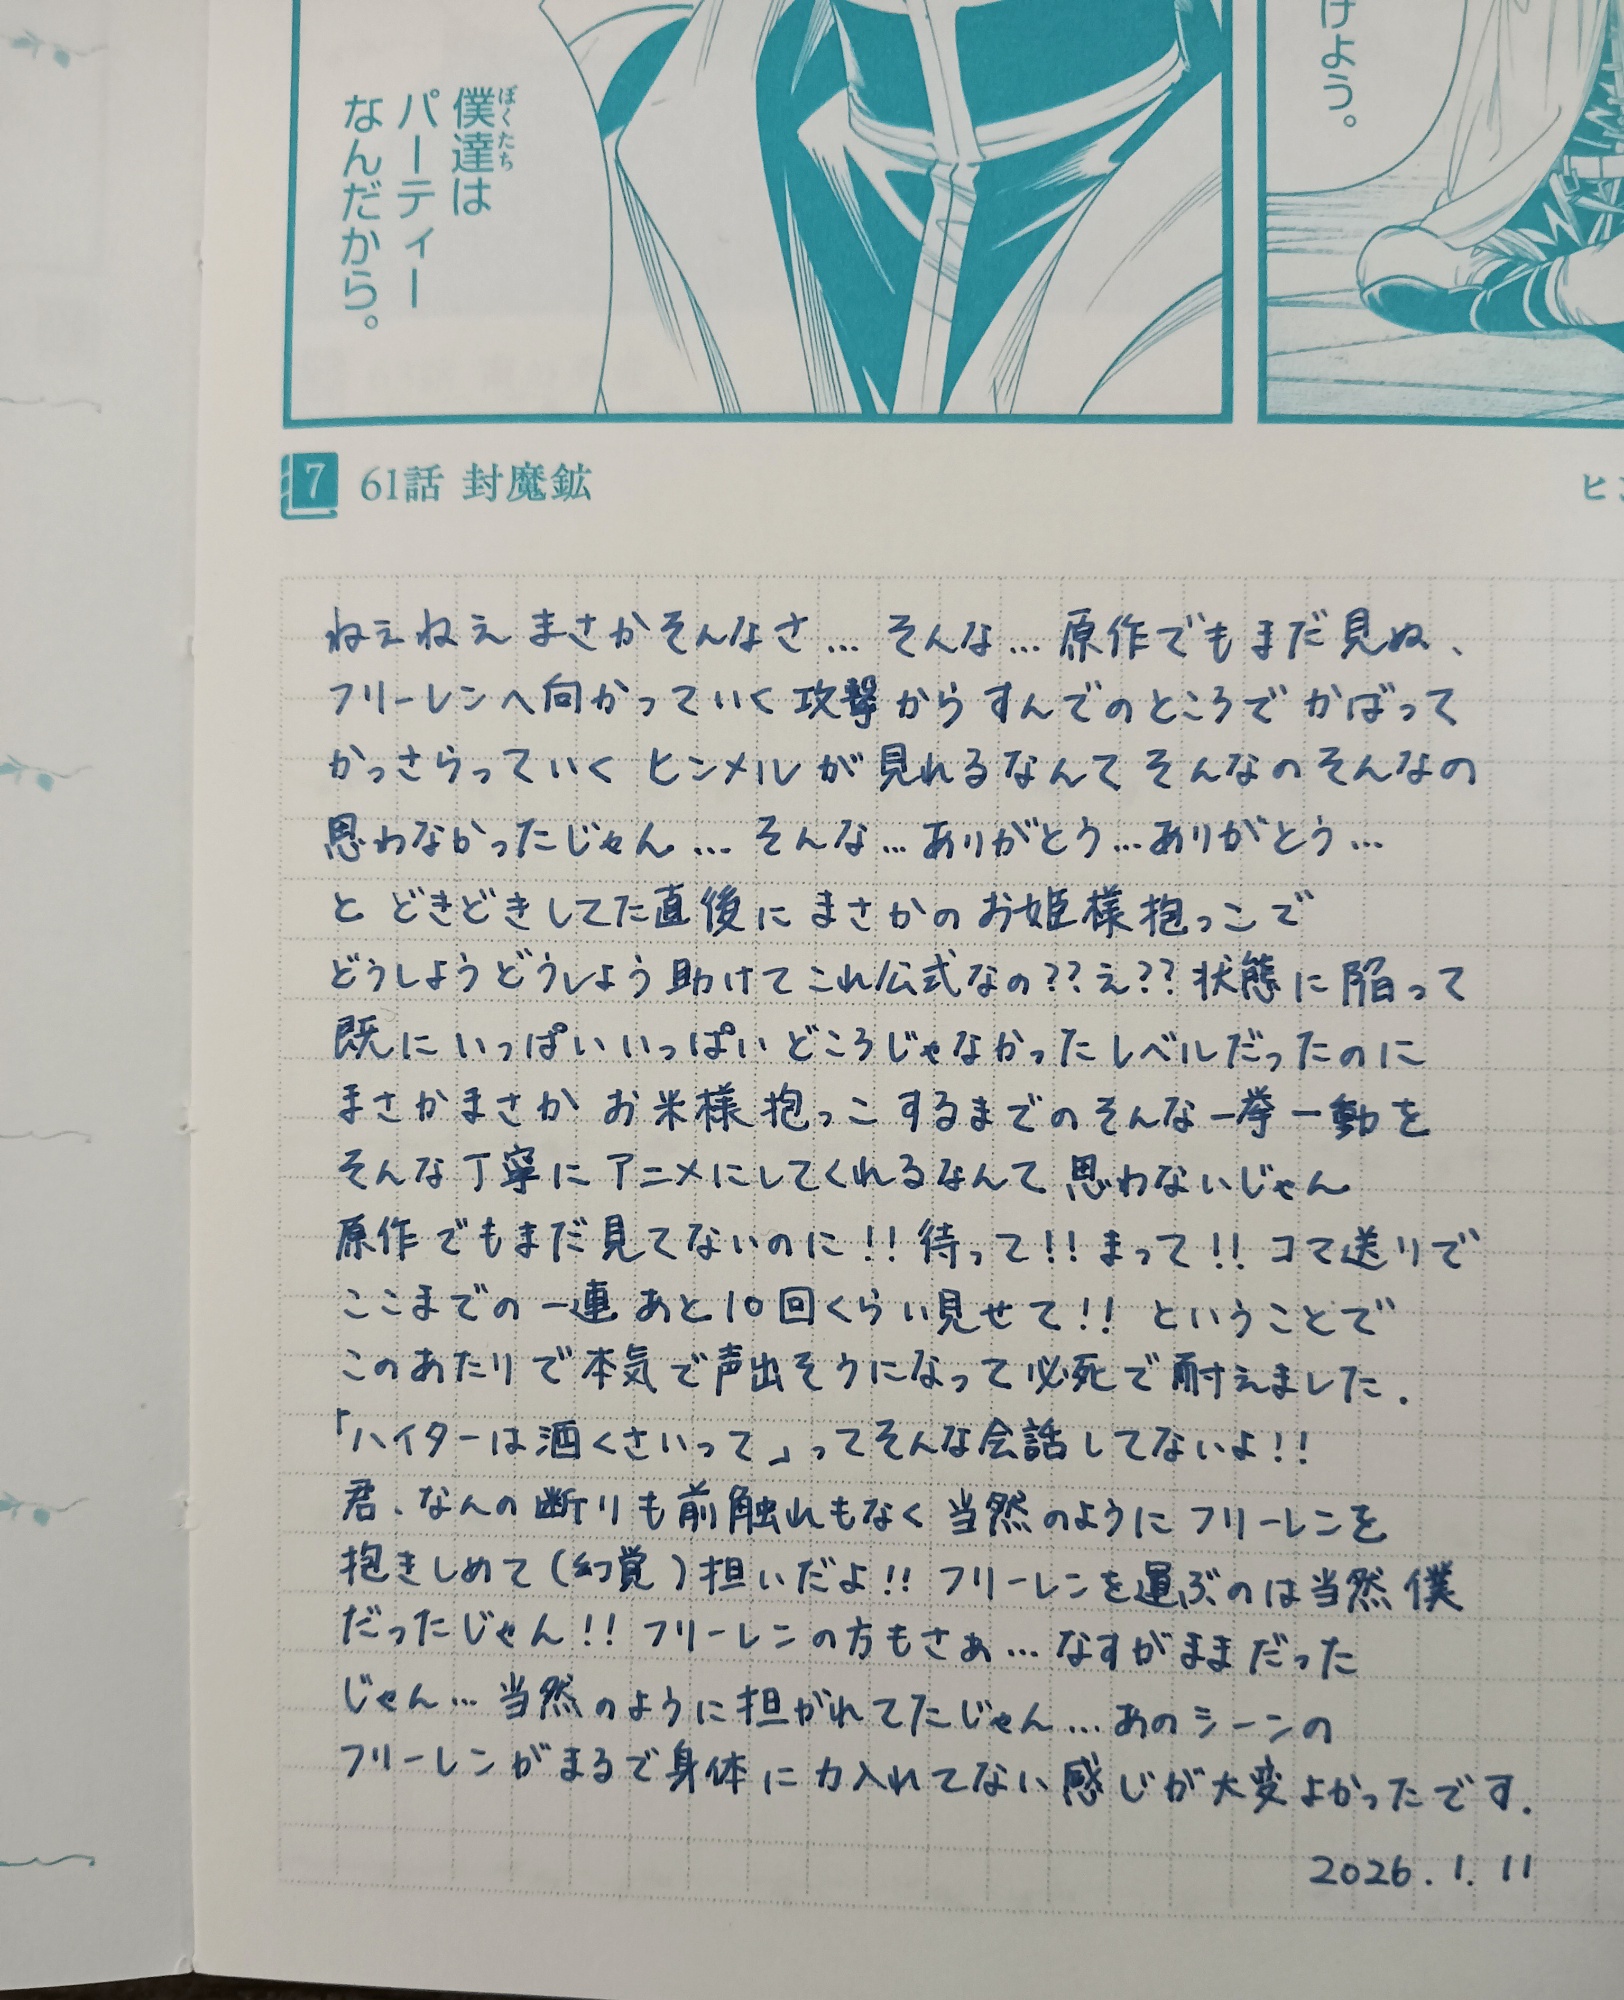 けよう。
僕達は
ぼくたち
パーティー
なんだから。
7 61話 封魔鉱
ヒン
ねえねえまさかそんなさ… そんな… 原作でもまだ見ぬ、
フリーレンへ向かっていく攻撃からすんでのところでかばって
かっさらっていくヒンメルが見れるなんてそんなのそんなの
思わなかったじゃん… そんな… ありがとう… ありがとう…
とどきどきしてた直後にまさかのお姫様抱っこで
どうしようどうしよう助けてこれ公式なの??え??状態に陥って
既にいっぱいいっぱいどころじゃなかったレベルだったのに
まさかまさかお米様抱っこするまでのそんな一挙一動を
そんな丁寧にアニメにしてくれるなんて思わないじゃん
原作でもまだ見てないのに!!待って!!まって!!コマ送りで
ここまでの一連あと10回くらい見せて!!ということで
このあたりで本気で声出そうになって必死で耐えました.
「ハイターは酒くさいって」ってそんな会話してないよ!!
君、なんの断りも前触れもなく当然のようにフリーレンを
抱きしめて(幻覚)担いだよ!!フリーレンを運ぶのは当然僕
だったじゃん!!フリーレンの方もさぁ…なすがままだった
じゃん…当然のように担がれてたじゃん…あのシーンの
フリーレンがまるで身体に力入れてない感じが大変よかったです.
2026.1.11